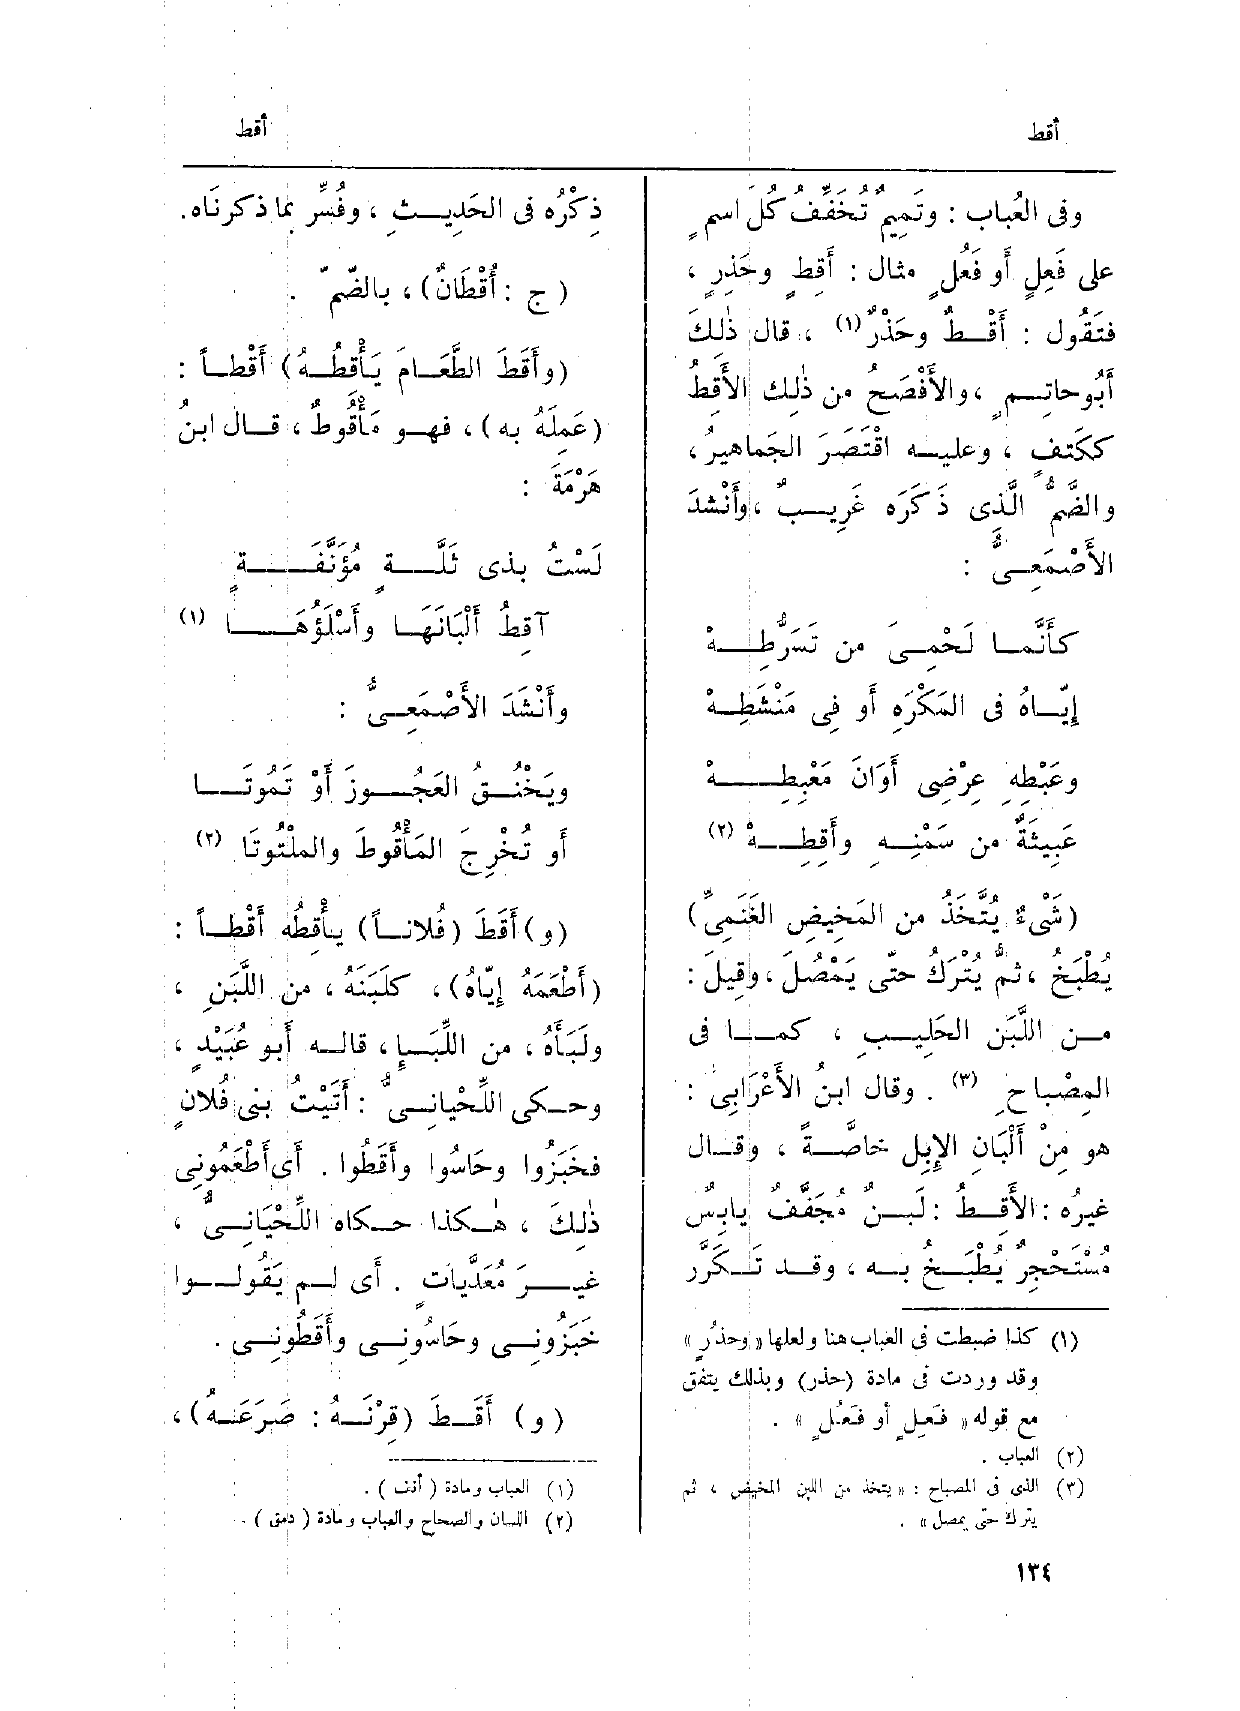 أقط
أقط
وفى العُباب : وتَمِيمٌ تُخَفِّفُ كُلَّ اسمٍ
على فَعِلٍ أو فَعُلٍ مثال : أَقِطٍ وحَذِرٍ ،
فتَقُول : أَقْطٌ وحَذْرٌ (١) ، قال ذٰلكَ
أَبُوحاتِمٍ ، والأَفْصَحُ من ذٰلك الأَقِطُ
ككَتِفٍ ، وعليه اقْتَصَرَ الجَماهيرُ ،
والضَّمُّ الَّذى ذَكَرَه غَرِيبٌ ، وأَنْشَدَ
الأَصْمَعِىُّ :
كأَنَّما لَحْمِىَ من تَسَرُّطِهْ
إِيّاهُ فى المَكْرَهِ أَو فِى مَنْشَطِهْ
وعَبْطِهِ عِرْضِى أَوَانَ مَعْبِطِهْ
عَبِيثَةٌ من سَمْنِهِ وأَقِطِهْ (٢)
(شَىْءٌ يُتَّخَذُ من المَخِيضِ الغَنَمِىِّ)
يُطْبَخُ ، ثمّ يُتْرَكُ حتّى يَمْصُلَ ، وقِيلَ :
من اللَّبَنِ الحَلِيبِ ، كما فى
المِصْباحِ (٣) . وقال ابنُ الأَعْرَابِىّ :
هو مِنْ أَلْبَانِ الإِبِلِ خاصَّةً ، وقال
غيرُه : الأَقِطُ : لَبنٌ مُجَفَّفٌ يابِسٌ
مُسْتَحْجِرٌ يُطْبَخُ به ، وقد تَكَرَّر
(١) كذا ضبطت فى العباب هنا ولعلها « وحَذُرٍ »
وقد وردت فى مادة (حذر) وبذلك يتفق
مع قوله « فَعِلٍ أو فَعُلٍ » .
(٢) العباب .
(٣) الذى فى المصباح : « يتخذ من اللبن المخيض ، ثم
يترك حتى يمصل » .
ذِكْرُه فى الحَدِيثِ ، وفُسِّرَ بما ذكرنَاه.
( ج : أُقْطَانٌ) ، بالضّمّ .
(وأَقَطَ الطَّعَامَ يَأْقِطُهُ) أَقْطاً :
(عَمِلَهُ به) ، فهو مَأْقُوطٌ ، قال ابنُ
هَرْمَةَ :
لَسْتُ بذى ثَلَّةٍ مُؤَنَّفَةٍ
آقِطُ أَلْبَانَهَا وأَسْلَؤُهَا (١)
وأَنْشَدَ الأَصْمَعِىُّ :
ويَخْنُقُ العَجُوزَ أَوْ تَمُوتَا
أو تُخْرِجَ المَأْقُوطَ والمَلْتُوتَا (٢)
(و) أَقَطَ (فُلاناً) يأْقِطُه أَقْطاً :
(أَطْعَمَهُ إِيّاهُ) ، كلَبَنَهُ ، من اللَّبَنِ ،
ولَبَأَهُ ، من اللِّبَإِ ، قاله أَبو عُبَيْدٍ ،
وحكى اللِّحْيانِىُّ : أَتَيْتُ بنِى فُلانٍ
فخَبَزُوا وحَاسُوا وأَقَطُوا . أَى أَطْعَمُونِى
ذٰلِكَ ، هٰكذا حكاه اللِّحْيَانِىُّ ،
غيرَ مُعَدَّيَاتٍ . أَى لم يَقُولُوا
خَبَزُونِى وحَاسُونِى وأَقَطُونِى .
(و) أَقَطَ (قِرْنَهُ : صَرَعَهُ) ،
(١) العباب ومادة ( أنف ) .
(٢) اللسان والصحاح والعباب ومادة ( دمق ) .
١٣٤